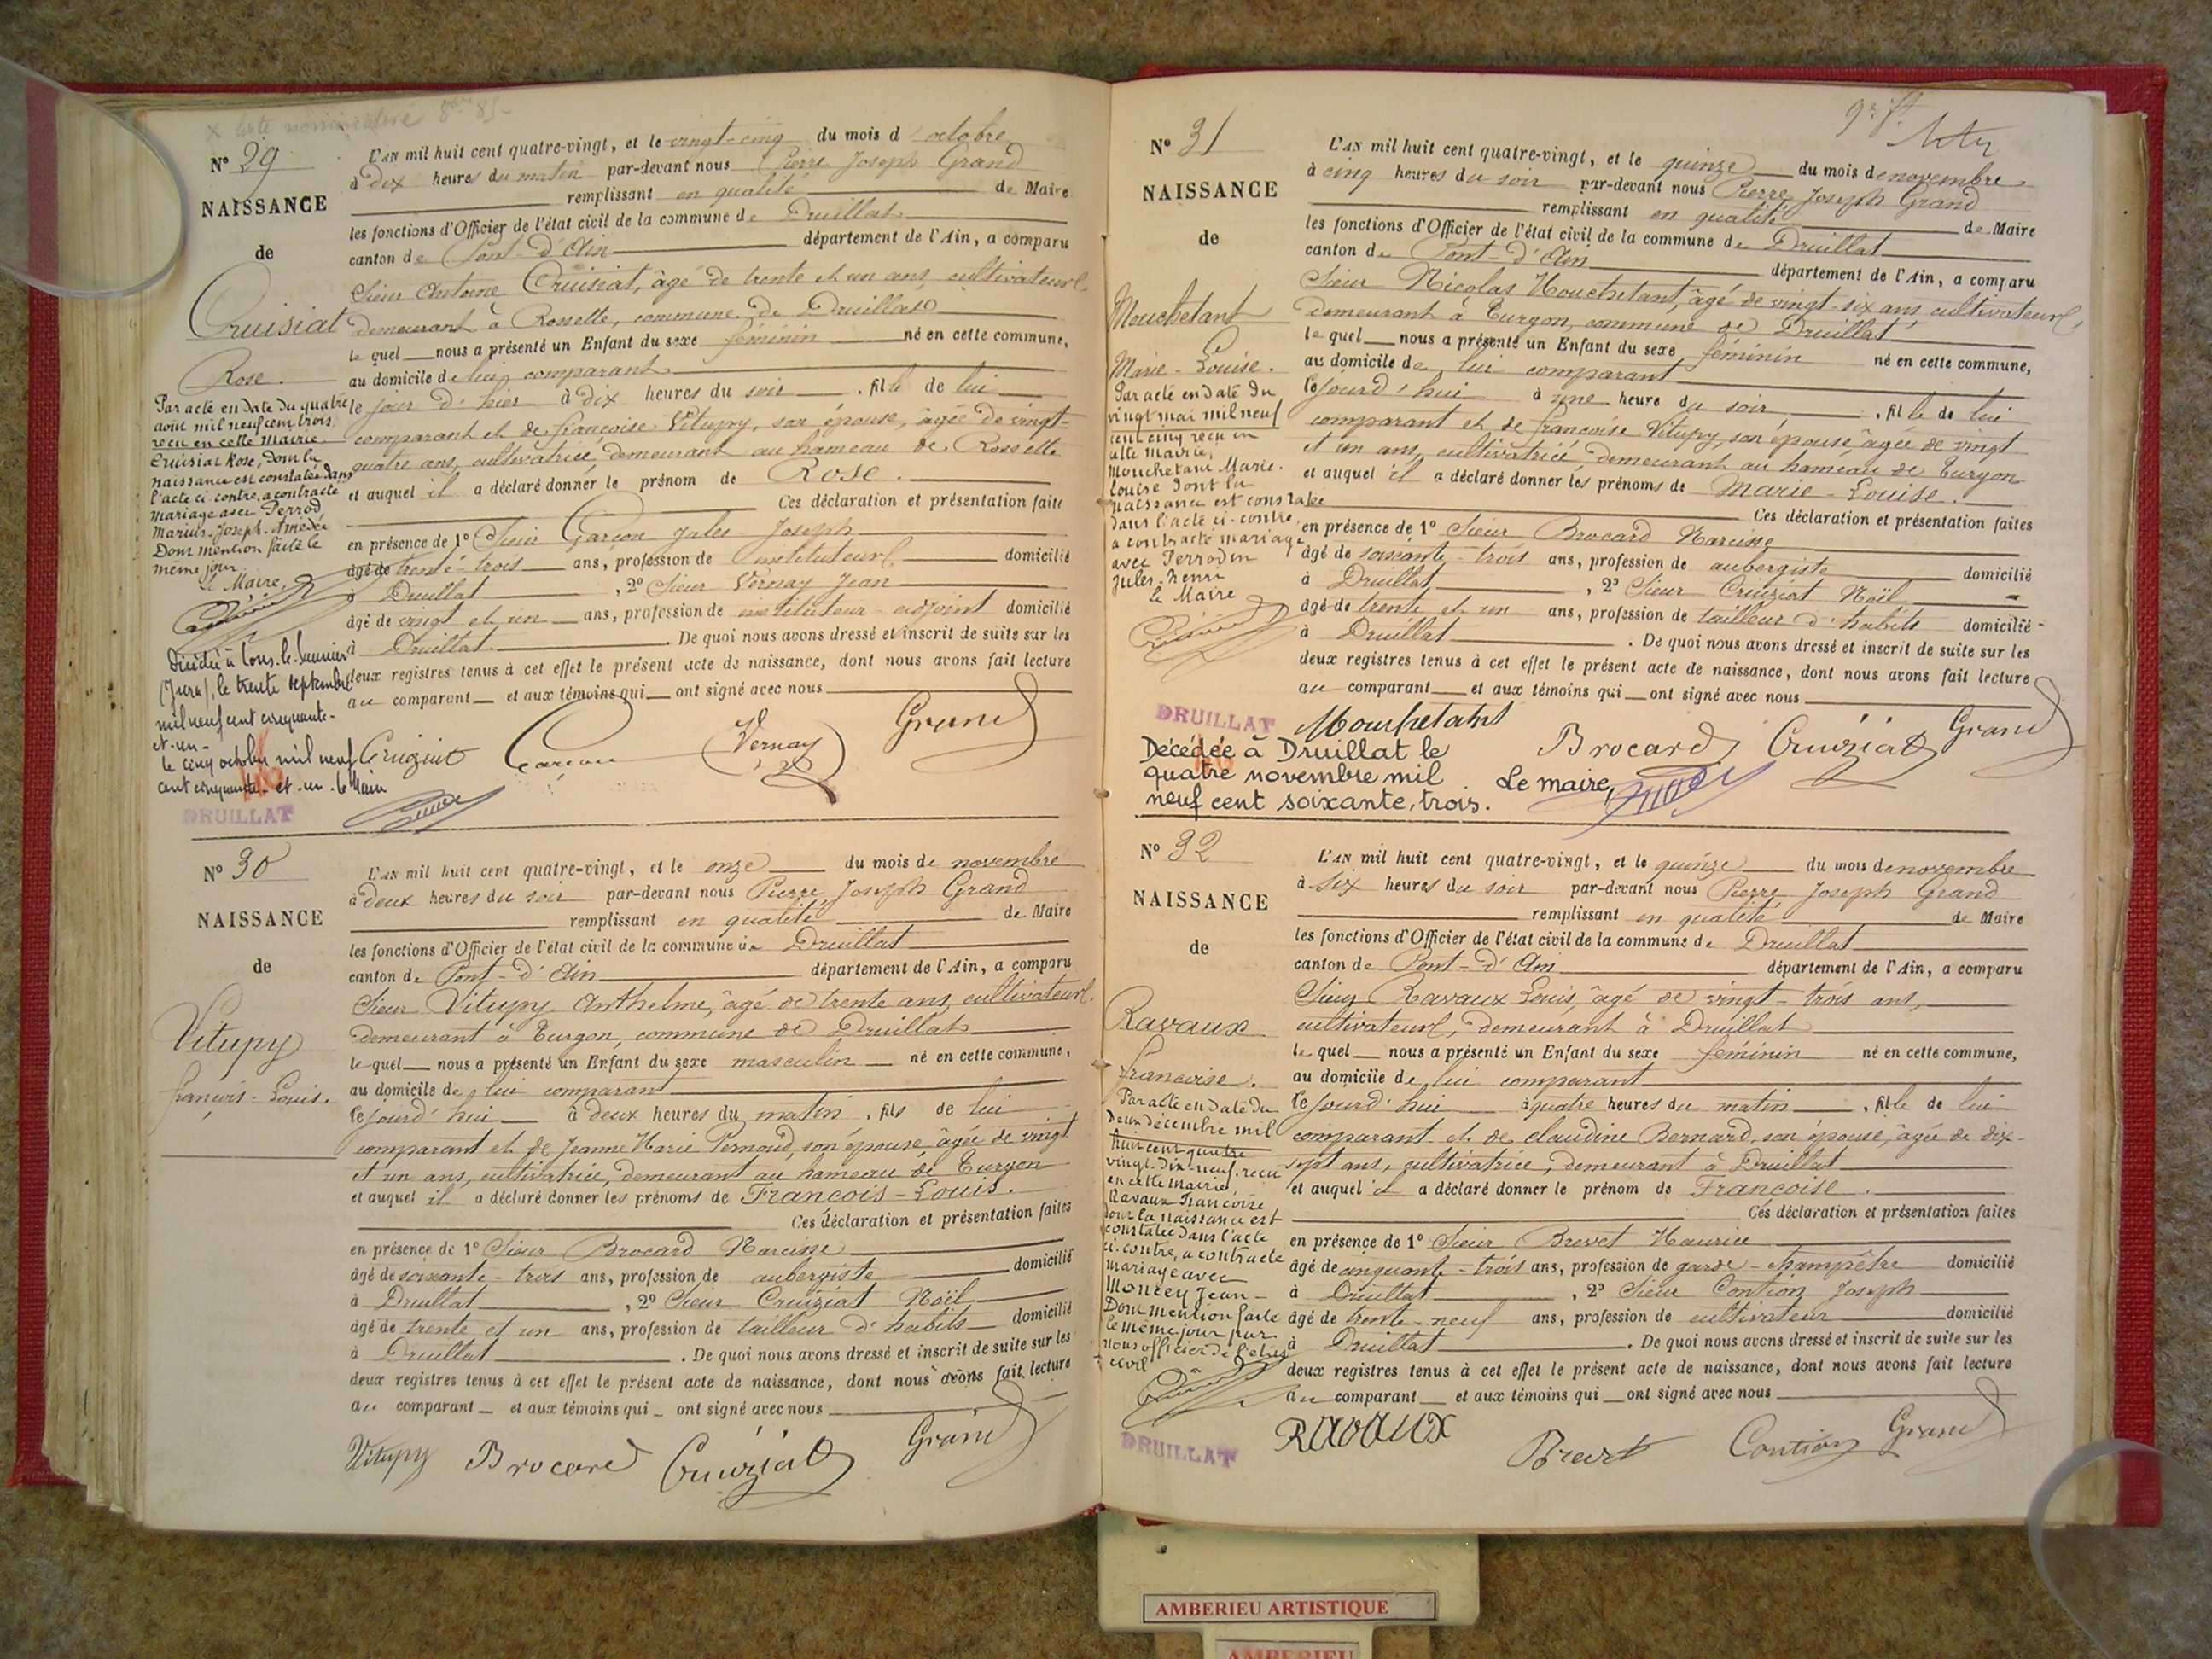 Nº 29
NAISSANCE
de
Cruisiat
Rose.
Par acte en date du quatre
août mil neuf cent trois
reçu en cette mairie
Cruisiat Rose, dont la
naissance est constatée dans
l'acte ci contre, a contracté
mariage avec Perrod
Marius-Joseph-Amédée
Dont mention faite le
même jour
le Maire,
Décédée à Lons-le-Saunier
(Jura), le trente septembre
mil neuf cent cinquante-
et-un-
le cinq octobre mil neuf
cent cinquante-et-un-le Maire
DRUILLAT
L'AN mil huit cent quatre-vingt, et le vingt-cinq du mois d'octobre
à dix heures du matin par-devant nous Pierre Joseph Grand
remplissant en qualité de Maire
les fonctions d'Officier de l'état civil de la commune de Druillat
canton de Pont-d'Ain département de l'Ain, a comparu
Sieur Antoine Cruisiat, âgé de trente et un ans, cultivateur
demeurant à Rossette, commune de Druillat
le quel nous a présenté un Enfant du sexe féminin né en cette commune,
au domicile de lui comparant
le jour d'hier à dix heures du soir, fille de lui
comparant et de françoise Vitupy, son épouse, âgée de vingt-
quatre ans, cultivatrice, demeurant au hameau de Rossette
et auquel il a déclaré donner le prénom de Rose.
Ces déclaration et présentation faite
en présence de 1º Sieur Garçon Jules Joseph
âgé de trente-trois ans, profession de instituteur domicilié
à Druillat, 2º Sieur Vernay Jean
âgé de vingt et un ans, profession de instituteur-adjoint domicilié
à Druillat. De quoi nous avons dressé et inscrit de suite sur les
deux registres tenus à cet effet le présent acte de naissance, dont nous avons fait lecture
au comparant et aux témoins qui ont signé avec nous
Cruiziat Garçon Vernay Grand
Nº 30
NAISSANCE
de
Vitupy
françois-Louis.
L'AN mil huit cent quatre-vingt, et le onze du mois de novembre
à deux heures du soir par-devant nous Pierre Joseph Grand
remplissant en qualité de Maire
les fonctions d'Officier de l'état civil de la commune de Druillat
canton de Pont-d'Ain département de l'Ain, a comparu
Sieur Vitupy Anthelme, âgé de trente ans, cultivateur
demeurant à Turgon, commune de Druillat
le quel nous a présenté un Enfant du sexe masculin né en cette commune,
au domicile de lui comparant
cejourd'hui à deux heures du matin, fils de lui
comparant et de Jeanne Marie Pernoud, son épouse, âgée de vingt
et un ans, cultivatrice, demeurant au hameau de Turgon
et auquel il a déclaré donner les prénoms de François-Louis.
Ces déclaration et présentation faites
en présence de 1º Sieur Brocard Narcisse
âgé de soixante-trois ans, profession de aubergiste domicilié
à Druillat, 2º Sieur Cruiziat Noël
âgé de trente et un ans, profession de tailleur d'habits domicilié
à Druillat. De quoi nous avons dressé et inscrit de suite sur les
deux registres tenus à cet effet le présent acte de naissance, dont nous avons fait lecture
au comparant et aux témoins qui ont signé avec nous
Vitupy Brocard Cruiziat Grand
Nº 31
NAISSANCE
de
Mouchetant
Marie-Louise.
Par acte en date du
vingt mai mil neuf
cent cinq reçu en
cette mairie,
Mouchetant Marie-
Louise dont la
naissance est constatée
dans l'acte ci-contre,
a contracté mariage
avec Perrodin
Jules-Henri
le Maire
DRUILLAT
Décédée à Druillat le
quatre novembre mil
neuf cent soixante, trois.
Le maire,
L'AN mil huit cent quatre-vingt, et le quinze du mois de novembre
à cinq heures du soir par-devant nous Pierre Joseph Grand
remplissant en qualité de Maire
les fonctions d'Officier de l'état civil de la commune de Druillat
canton de Pont-d'Ain département de l'Ain, a comparu
Sieur Nicolas Mouchetant, âgé de vingt-six ans, cultivateur,
demeurant à Turgon, commune de Druillat
le quel nous a présenté un Enfant du sexe féminin né en cette commune,
au domicile de lui comparant
cejourd'hui à une heure du soir, fille de lui
comparant et de françoise Vitupy, son épouse, âgée de vingt
et un ans, cultivatrice, demeurant au hameau de Turgon
et auquel il a déclaré donner les prénoms de Marie-Louise.
Ces déclaration et présentation faites
en présence de 1º Sieur Brocard Narcisse
âgé de soixante-trois ans, profession de aubergiste domicilié
à Druillat, 2º Sieur Cruiziat Noël
âgé de trente et un ans, profession de tailleur d'habits domicilié
à Druillat. De quoi nous avons dressé et inscrit de suite sur les
deux registres tenus à cet effet le présent acte de naissance, dont nous avons fait lecture
au comparant et aux témoins qui ont signé avec nous
Mouchetant Brocard Cruiziat Grand
Nº 32
NAISSANCE
de
Ravaux
francoise.
Par acte en date du
deux décembre mil
huit cent quatre
vingt-dix-neuf, reçu
en cette mairie,
Ravaux Françoise
dont la naissance est
constatée dans l'acte
ci-contre, a contracté
mariage avec
Monrey Jean-
Dont mention faite
le même jour par
nous officier de l'état
civil
DRUILLAT
L'AN mil huit cent quatre-vingt, et le quinze du mois de novembre
à six heures du soir par-devant nous Pierre Joseph Grand
remplissant en qualité de Maire
les fonctions d'Officier de l'état civil de la commune de Druillat
canton de Pont-d'Ain département de l'Ain, a comparu
Sieur Ravaux Louis, âgé de vingt-trois ans,
cultivateur, demeurant à Druillat
le quel nous a présenté un Enfant du sexe féminin né en cette commune,
au domicile de lui comparant
cejourd'hui à quatre heures du matin, fille de lui
comparant et de claudine Bernard, son épouse, âgée de dix-
sept ans, cultivatrice, demeurant à Druillat
et auquel il a déclaré donner le prénom de Françoise.
Ces déclaration et présentation faites
en présence de 1º Sieur Brevet Maurice
âgé de cinquante-trois ans, profession de garde-champêtre domicilié
à Druillat, 2º Sieur Contion Joseph
âgé de trente-neuf ans, profession de cultivateur domicilié
à Druillat. De quoi nous avons dressé et inscrit de suite sur les
deux registres tenus à cet effet le présent acte de naissance, dont nous avons fait lecture
au comparant et aux témoins qui ont signé avec nous
Ravaux Brevet Contion Grand
AMBERIEU ARTISTIQUE
AMBERIEU